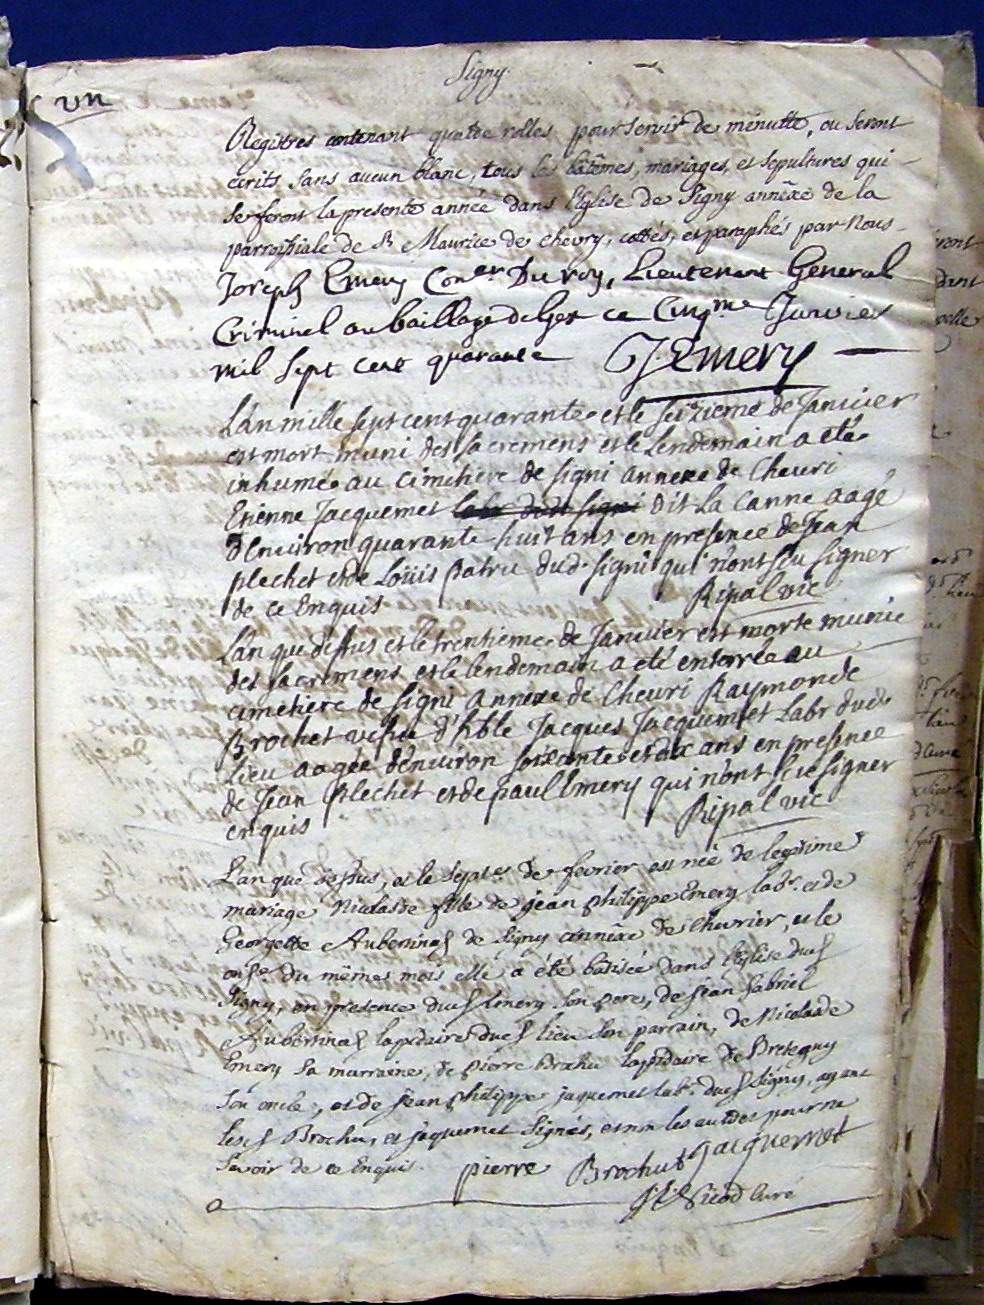 Signy
un
Registres contenant quatre rolles pour servir de minutte, ou seront
ecrits sans aucun blanc, tous les bâtêmes, mariages, et sepultures qui
se feront la presente année dans l'Eglise de Signy annêxe de la
parroissiale de St Maurice de chevry, cottés, et paraphés par Nous
Joseph Emery Coner Du roy, Lieutenant General
Criminel au baillage de Gex ce Cinqme Janvier
mil sept cent quarante J. Emery
L'an mille sept cent quarante et le seizieme de Janvier
est mort muni des sacremens et le lendemain a eté
inhumé au cimetiere de signi annexe de Cheuri
Etienne Jacquemet labr dudt signi dit La Canne aagé
d'Enuiron quarante huit ans en presence de Jean
plechet et de Loüis patru dud. signi qui n'ont sçu signer
de ce Enquis Ripal vic
L'an que dessus et le trentieme de Janvier est morte munie
des sacremens et le lendemain a eté enterrée au
cimetiere de signi annexe de Cheuri Raymonde
Brochet vefue d'hble Jacques Jacquemet Labr dud.
Lieu aagée d'enuiron soixante et dix ans en presence
de Jean plechet et de paul Emery qui n'ont sçu signer
enquis Ripal vic
L'an que dessus, et le sept de fevrier est née de legitime
mariage Nicolarde fille de jean philippe Emery labr. et de
Georgette de Signy annêxe de Chevrier, et le
onze du mêmes mois elle a eté bâtisée dans l'Eglise dud
Signy, en presence dud Emery son pere, de jean Gabriel
lapidaire dud lieu son parrain, de Nicolarde
Emery sa marraine, de pierre Brochu lapidaire de Bretegny
son oncle, et de jean philippe jaquemet labr. dud Signy, ayant
lesd Brochu, et jaquemet signés, et non les autres pour ne
savoir de ce Enquis. pierre Brochut Jacquemet
Nicod Curé